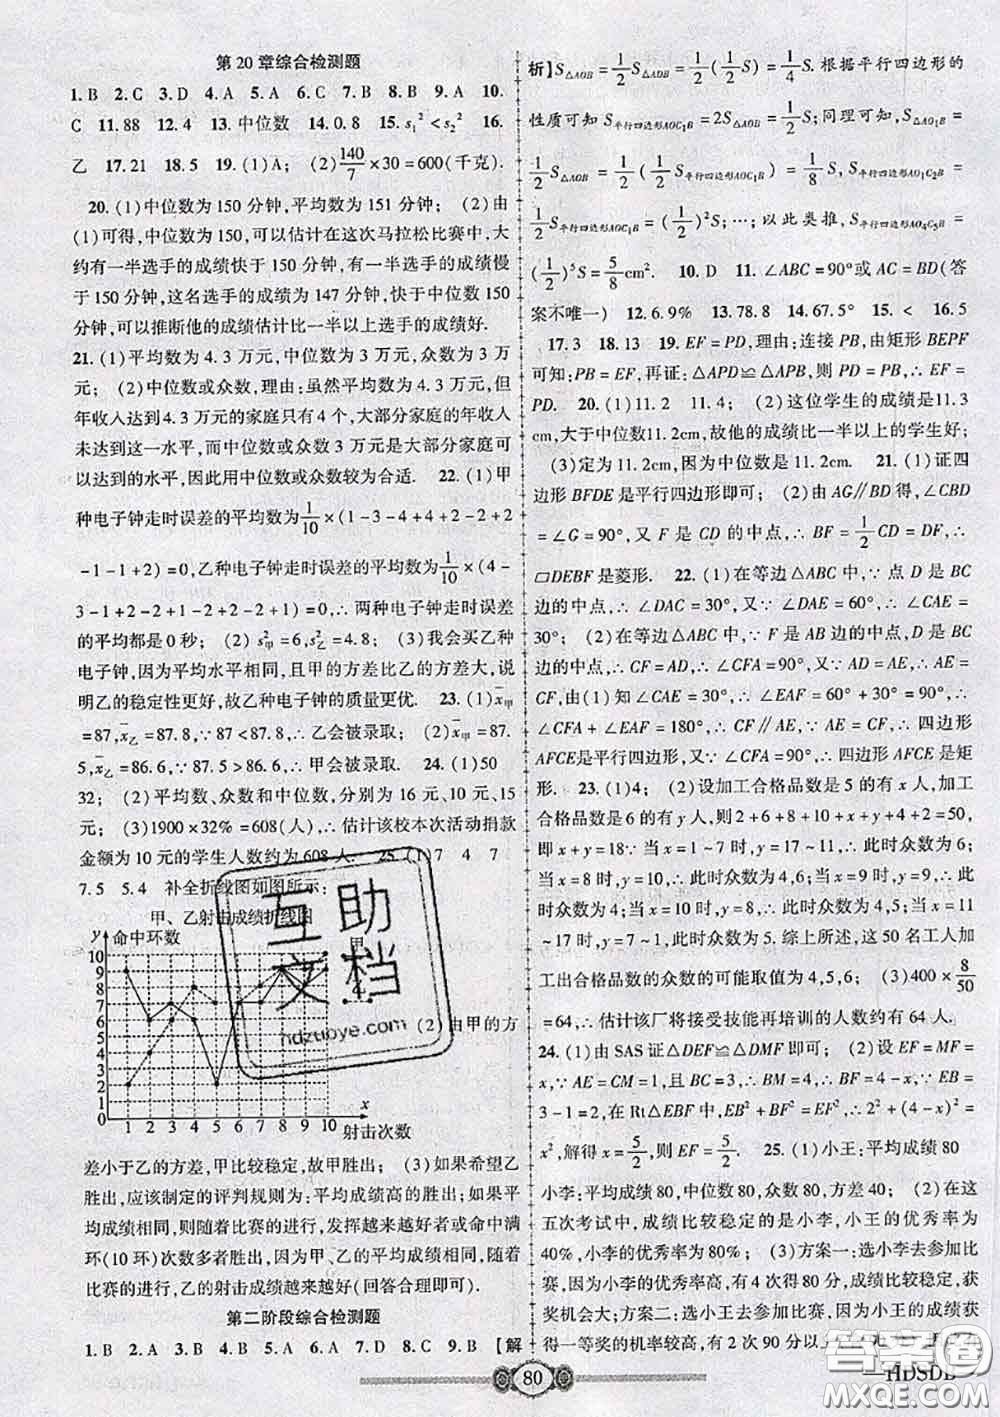 第 20 章综合检测题
1. B 2. C 3. D 4. A 5. A 6. C 7. B 8. A 9. A 10.
C 11. 88 12. 4 13. 中位数 14. 0.8 15. s₁² < s₂² 16.
乙 17. 21 18. 5 19. (1)A; (2) 140/7 ×30=600(千克).
20. (1)中位数为 150 分钟,平均数为 151 分钟; (2)由
(1)可得,中位数为 150,可以估计在这次马拉松比赛中,大
约有一半选手的成绩快于 150 分钟,有一半选手的成绩慢
于 150 分钟,这名选手的成绩为 147 分钟,快于中位数 150
分钟,可以推断他的成绩估计比一半以上选手的成绩好.
21. (1)平均数为 4.3 万元,中位数为 3 万元,众数为 3 万
元; (2)中位数或众数,理由:虽然平均数为 4.3 万元,但
年收入达到 4.3 万元的家庭只有 4 个,大部分家庭的年收入
未达到这一水平,而中位数或众数 3 万元是大部分家庭可
以达到的水平,因此用中位数或众数较为合适. 22. (1)甲
种电子钟走时误差的平均数为 1/10 ×(1-3-4+4+2-2+2
-1-1+2)=0,乙种电子钟走时误差的平均数为 1/10 ×(4-
3-1+2-2+1-2+2-2+1)=0,∴ 两种电子钟走时误差
的平均都是 0 秒; (2) s²甲=6,s²乙=4.8; (3)我会买乙种
电子钟,因为平均水平相同,且甲的方差比乙的方差大,说
明乙的稳定性更好,故乙种电子钟的质量更优. 23. (1)x̄甲
=87,x̄乙=87.8,∵ 87<87.8,∴ 乙会被录取; (2)x̄甲=87.
5,x̄乙=86.6,∵ 87.5>86.6,∴ 甲会被录取. 24. (1)50
32; (2)平均数、众数和中位数,分别为 16 元、10 元、15
元; (3)1900×32%=608(人),∴ 估计该校本次活动捐款
金额为 10 元的学生人数约为 608 人. 25. (1) 7 4 7
7.5 5.4 补全折线图如图所示:
甲、乙射击成绩折线图
y 命中环数
10
9
8
7
6
5
4
3
2
1
0
1 2 3 4 5 6 7 8 9 10
x
射击次数
甲
乙
(2)由甲的方
差小于乙的方差,甲比较稳定,故甲胜出; (3)如果希望乙
胜出,应该制定的评判规则为:平均成绩高的胜出;如果平
均成绩相同,则随着比赛的进行,发挥越来越好者或命中满
环(10 环)次数多者胜出,因为甲、乙的平均成绩相同,随着
比赛的进行,乙的射击成绩越来越好(回答合理即可).
第二阶段综合检测题
1. B 2. A 3. B 4. B 5. A 6. A 7. D 8. C 9. B 【解
析】S△AOB = 1/2 S△ADB = 1/2 ( 1/2 S) = 1/4 S. 根据平行四边形的
性质可知 S平行四边形AOC₁B = 2S△AOB = 1/2 S;同理可知,S△AO₁B =
1/2 S△AOB = 1/2 S平行四边形AOC₁B = 1/8 S, S平行四边形AO₁C₂B =
1/2 S平行四边形AOC₁B = ( 1/2 )²S;…;以此类推,S平行四边形AO₄C₅B =
( 1/2 )⁵S = 5/8 cm². 10. D 11. ∠ABC=90°或 AC=BD(答
案不唯一) 12. 6.9% 13. 78.8 14. 67.5° 15. < 16. 5
17. 3 18. 13 19. EF=PD,理由:连接 PB,由矩形 BEPF
可知:PB=EF,再证:△APD≌△APB,所以 PD=PB,∴ EF=
PD. 20. (1)11.2 11.4; (2)这位学生的成绩是 11.3
cm,大于中位数 11.2cm,故他的成绩比一半以上的学生好;
(3)定为 11.2cm,因为中位数是 11.2cm. 21. (1)证四
边形 BFDE 是平行四边形即可; (2)由 AG∥DB 得,∠CBD
=∠G=90°,又 F 是 CD 的中点,∴ BF= 1/2 CD=DF,∴
▱DEBF 是菱形. 22. (1)在等边△ABC 中,∵ D 是 BC
边的中点,∴ ∠DAC=30°,又∵ ∠DAE=60°,∴ ∠CAE=
30°; (2)在等边△ABC 中,∵ F 是 AB 边的中点,D 是 BC
边的中点,∴ CF=AD,∴ ∠CFA=90°,又∵ AD=AE,∴ AE=
CF,由(1)知∠CAE=30°,∴ ∠EAF=60°+30°=90°,∴
∠CFA+∠EAF=180°,∴ CF∥AE,∵ CF=AE,∴ 四边形
AFCE 是平行四边形,又∵ ∠CFA=90°,∴ 四边形 AFCE 是矩
形. 23. (1)4; (2)设加工合格品数是 5 的有 x 人,加工
合格品数是 6 的有 y 人,则 2+6+8+10+x+y+4+2=50,
即 x+y=18∵ 当 x=1~7 时,此时众数为 6;当 x=8 时,y=
10,此时众数为 4,6;当 x=9 时,y=9,此时众数为 4;当 x=
10 时,y=8,此时众数为 4,5;当 x=11
~17 时,y=7~1,此时众数为 5. 综上所述,这 50 名工人加
工出合格品数的众数的可能取值为 4,5,6; (3)400× 8/50
=64,∴ 估计该厂将接受技能再培训的人数约有 64 人.
24. (1)由 SAS 证△DEF≌△DMF 即可; (2)设 EF=MF=
x,∵ AE=CM=1,且 BC=3,∴ BM=4,∴ BF=4-x,∵ EB=
3-1=2 在 Rt△EBF 中,EB²+BF²=EF²,∴ 2²+(4-x)²=
x²,解得 x= 5/2 ,则 EF= 5/2 . 25. (1)小王:平均成绩 80
小李:平均成绩 80,中位数 80,众数 80,方差 40; (2)在这
五次考试中,成绩比较稳定的是小李,小王的优秀率为
40%,小李的优秀率为 80%; (3)方案一:选小李参加比
赛,因为小李的优秀率高,有 4 次得 80 分,成绩比较稳定,获
奖机会大;方案二:选小王参加比赛,因为小王的成绩获
得一等奖的机率较高,有 2 次 90 分以上
—HDSDB
80
互助
文档
hdzuoye.com
答案圈
MXQE.COM